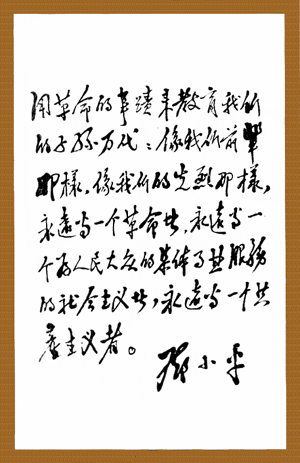 用革命的事蹟来教育我们
的子孙万代：像我们前輩
那樣，像我们的先烈那樣，
永遠当一个革命者，永遠当一
个为人民大众的集体事业服務
的社会主义者，永遠当一个共
產主义者。
邓小平